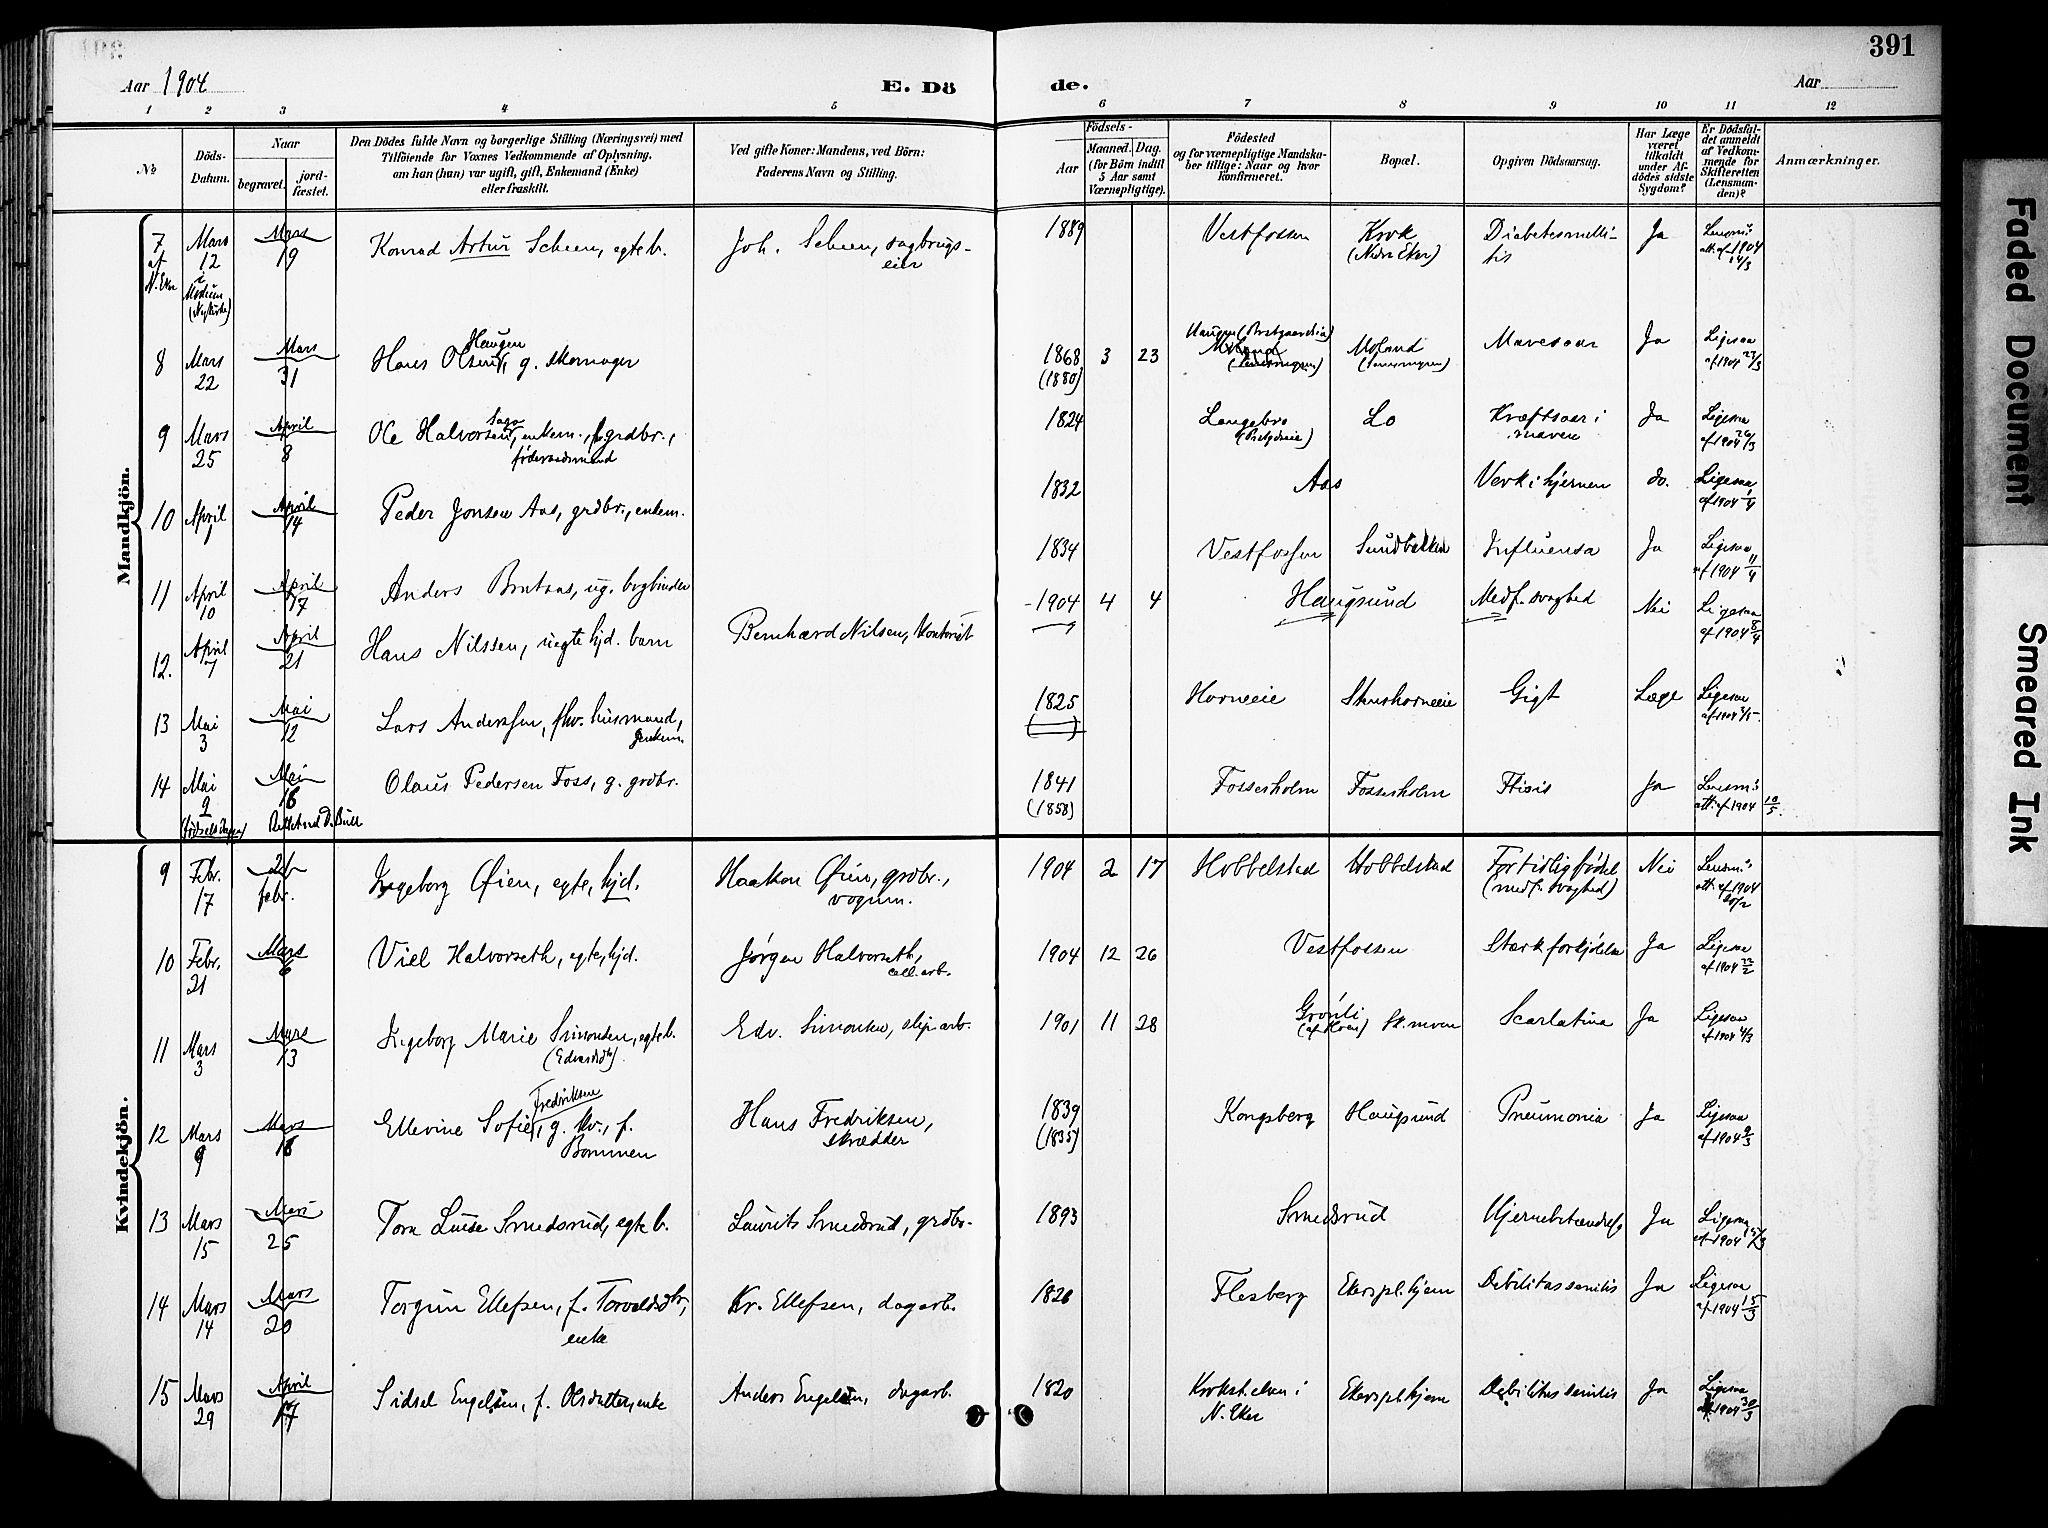 391
Aar 1904
E. Dö
de.
Aar
1 2 3 4 5 6 7 8 9 10 11 12
No.
Döds-Datum.
Naar
begravet.
jord-fæstet.
Den Dödes fulde Navn og borgerlige Stilling (Næringsvei) med
Tilföiende for Voxnes Vedkommende af Oplysning,
om han (hun) var ugift, gift, Enkemand (Enke)
eller fraskilt.
Ved gifte Koner: Mandens, ved Börn:
Faderens Navn og Stilling.
Födsels-
Aar
Maaned. Dag.
(for Börn indtil
5 Aar samt
Værnepligtige).
Födested
og for værnepligtige Mandska-
ber tillige: Naar og hvor
konfirmeret.
Bopæl.
Opgiven Dödsaarsag.
Har Læge
været
tilkaldt
under Af-
dödes sidste
Sygdom?
Er Dödsfal-
det anmeldt
af Vedkom-
mende for
Skifteretten
(Lensman-
den)?
Anmærkninger.
Mandkjön.
7 af N. Eker Mars 12 i Modum (Nykirke) Mars 19 Konrad Artur Scheen, egte b. Joh. Scheen, sagbrugs-eier 1889 Vestfossen Krok (Nedre Eker) Diabetes mellitis Ja Lensm's att. af 1904 14/3
8 Mars 22 Mars 31 Hans Olsen Haugen, g. skomager 1868 (1880) 3 23 Haugen Moland Mavesaar Ja Ligesaa af 1904 23/3
9 Mars 25 April 8 Ole Halvorsen Saga, enkem., f. grdbr., föderaadsmand 1824 Langebro Lo Kræftsaar i maven Ja Ligesaa af 1904 26/3
10 April 1 April 14 Peder Jonsen Aas, grdbr., enkem. 1832 Aas Verk i hjernen do. Ligesaa af 1904 1/4
11 April 10 April 17 Anders Brutaas, ug. bogbinder 1834 Vestfossen Sundbakken Influensa Ja Ligesaa af 1904 11/4
12. April 7 April 21 Hans Nilssen, uegte hjd. barn Bernhard Nilsen, kontorist 1904 4 4 Haugsund Medf. svaghed Nei Ligesaa af 1904 8/4
13 Mai 3 Mai 12 Lars Anderssen, fhv. husmand, enkem. 1825 Horneeie Skushorneeie Gigt Læge Ligesaa af 1904 3/5
14 Mai 9 (födselsdagen) Mai 16 Olaus Pedersen Foss, g. grdbr. 1841 (1858) Fossesholm Fossesholm Ftisis Ja Lensm's att. af 1904 10/5
Kvindekjön.
9 Febr. 17 26 febr. Ingeborg Øien, egte, hjd. Haakon Øien, grdbr., vognm. 1904 2 17 Hobbelstad Hobbelstad For tidlig födsel (medf. svaghed) Nei Lensm's att. af 1904 20/2
10 Febr. 21 Mars 6 Viel Halvorseth, egte, hjd. Jørgen Halvorseth, cell. arb. 1904 12 26 Vestfossen Stærk forkjölelse Ja Ligesaa af 1904 22/2
11 Mars 3 Mars 13 Ingeborg Marie Simonsen, egte b. (Edvardsdtr) Edv. Simonsen, slip. arb. 1901 11 28 Grönli Sk. moen Scarlatina Ja Ligesaa af 1904 4/3
12 Mars 9 Mars 16 Ellevine Sofie Fredriksen, g. kv., f. Bommen Hans Fredriksen, skrædder 1839 (1835) Kongsberg Haugsund Pneumonia Ja Ligesaa af 1904 9/3
13 Mars 15 Mars 25 Tora Luise Smedsrud, egte b. Laurits Smedsrud, grdbr. 1893 Smedsrud Hjernebetændelse Ja Ligesaa af 1904
14 Mars 14 Mars 20 Torgun Ellefsen, f. Torvaldsdtr, enke Kr. Ellefsen, dagarb. 1826 Flesberg Ekers pl. hjem Debilitas senilis Ja Ligesaa af 1904 15/3
15 Mars 29 April 17 Sidsel Engelsen, f. Olsdatter, enke Anders Engelsen, dagarb. 1820 Krokst.elven i N. Eker Ekers pl. hjem Debilitas senilis Ja Ligesaa 1904 30/3
Faded Document
Smeared Ink